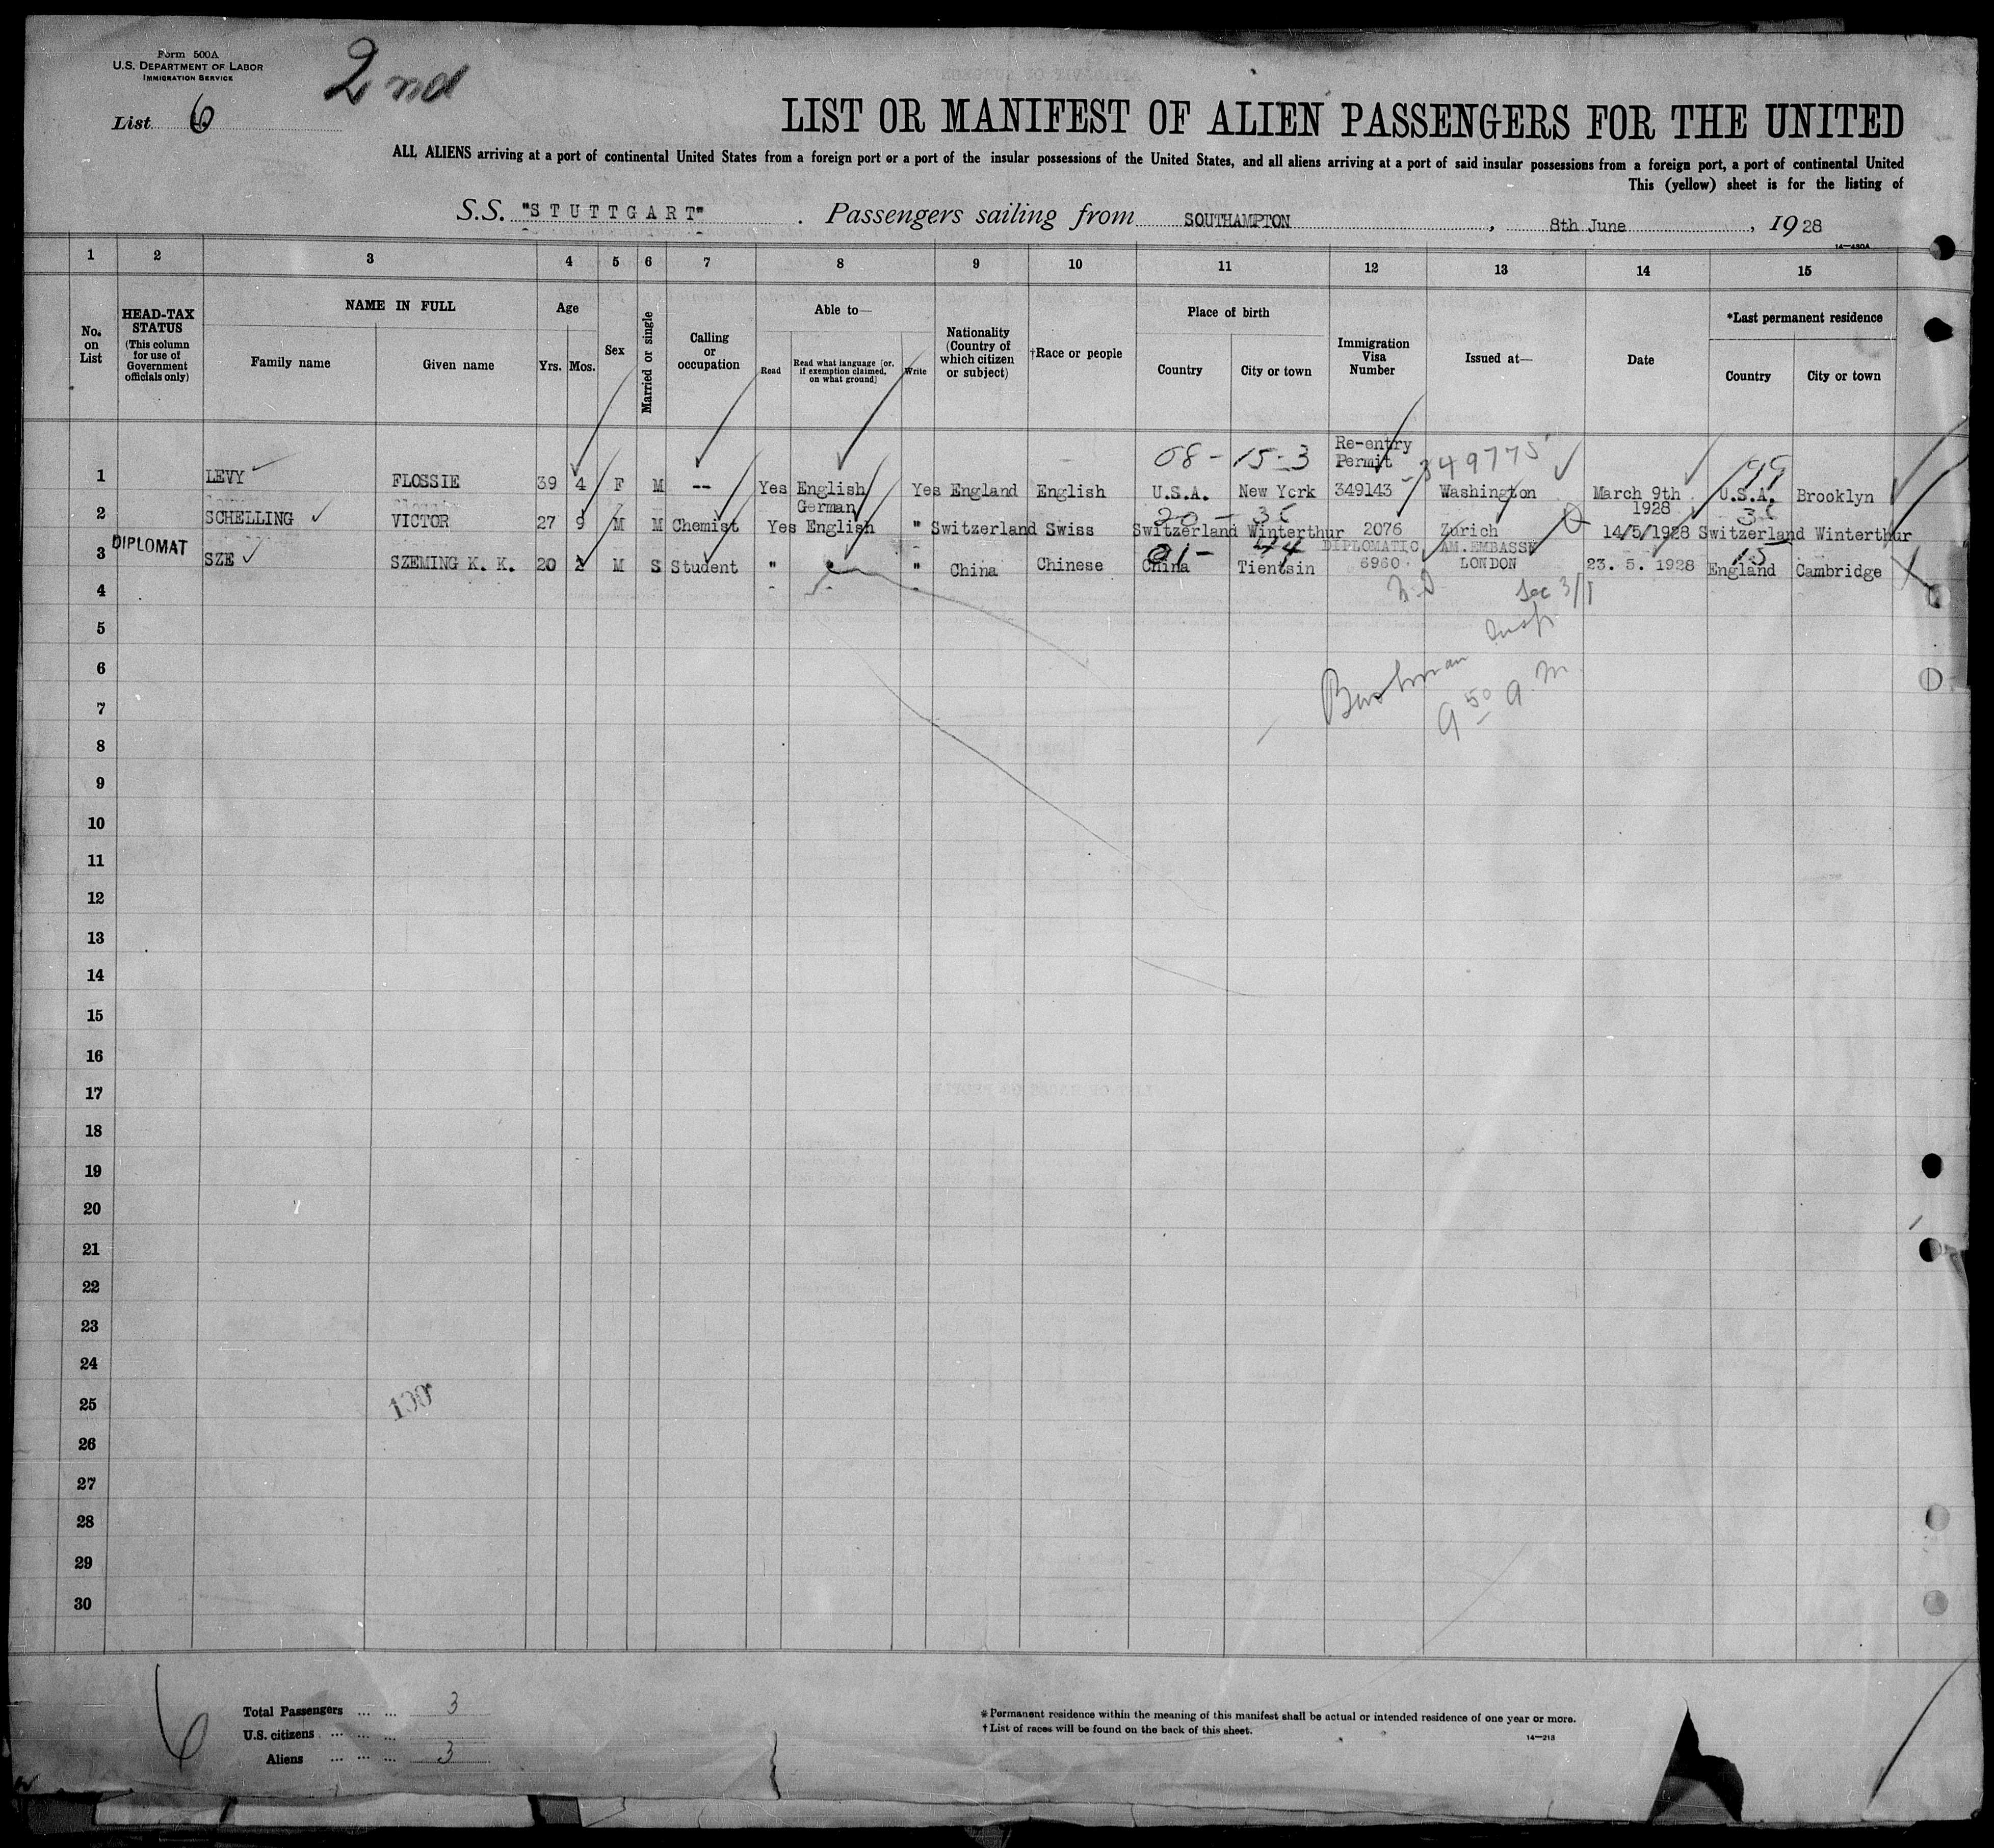 Form 500A
U.S. DEPARTMENT OF LABOR
IMMIGRATION SERVICE
2nd
List 6
LIST OR MANIFEST OF ALIEN PASSENGERS FOR THE UNITED
ALL ALIENS arriving at a port of continental United States from a foreign port or a port of the insular possessions of the United States, and all aliens arriving at a port of said insular possessions from a foreign port, a port of continental United
This (yellow) sheet is for the listing of
S.S. "STUTTGART" . Passengers sailing from SOUTHAMPTON , 8th June , 1928
14—430A
1 2 3 4 5 6 7 8 9 10 11 12 13 14 15
No. on List
HEAD-TAX STATUS (This column for use of Government officials only)
NAME IN FULL
Family name Given name
Age
Yrs. Mos.
Sex
Married or single
Calling or occupation
Able to—
Read Read what language [or, if exemption claimed, on what ground] Write
Nationality (Country of which citizen or subject)
†Race or people
Place of birth
Country City or town
Immigration Visa Number
Issued at—
Date
*Last permanent residence
Country City or town
08-15-3 Re-entry Permit 349775 199
1 LEVY FLOSSIE 39 4 F M -- Yes English Yes England English U.S.A. New York 349143 Washington March 9th 1928 U.S.A. Brooklyn
German
2 SCHELLING VICTOR 27 9 M M Chemist Yes English " Switzerland Swiss Switzerland Winterthur 2076 Zurich 14/5/1928 Switzerland Winterthur
DIPLOMAT DIPLOMATIC AM. EMBASSY
3 SZE SZEMING K. K. 20 2 M S Student " " China Chinese China Tientsin 6960 LONDON 23. 5. 1928 England Cambridge
4 Sec 3/1
5 Insp
6
7 9 50 a m
8
9
10
11
12
13
14
15
16
17
18
19
20
21
22
23
24
25 100
26
27
28
29
30
6
Total Passengers ... ... 3
U.S. citizens ... ... ...
Aliens ... ... ... 3
*Permanent residence within the meaning of this manifest shall be actual or intended residence of one year or more.
†List of races will be found on the back of this sheet.
14—213